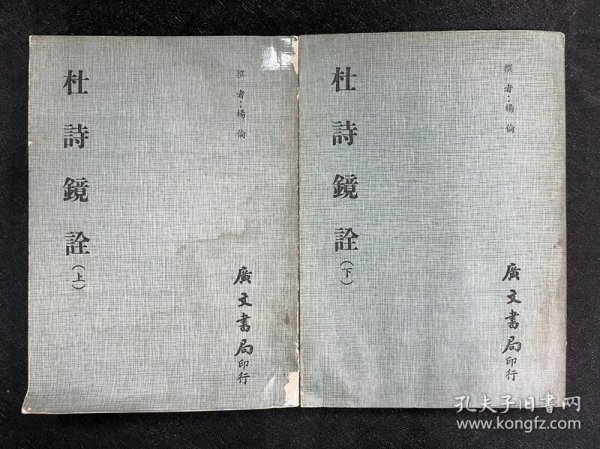 杜詩鏡詮(上)
撰者:楊倫
廣文書局印行
杜詩鏡詮(下)
撰者:楊倫
廣文書局印行
孔夫子旧书网
www.kongfz.com